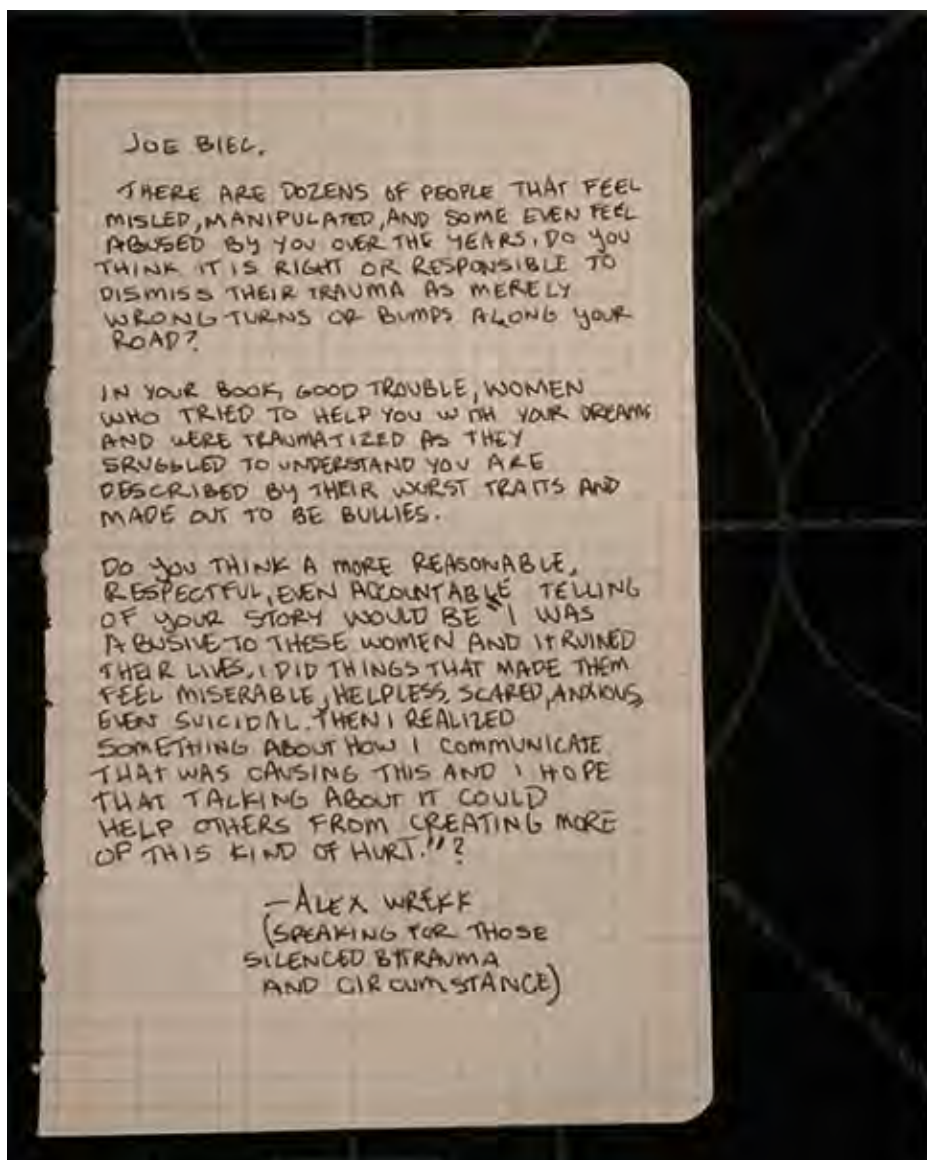 JOE BIEL.
THERE ARE DOZENS OF PEOPLE THAT FEEL
MISLED, MANIPULATED, AND SOME EVEN FEEL
ABUSED BY YOU OVER THE YEARS. DO YOU
THINK IT IS RIGHT OR RESPONSIBLE TO
DISMISS THEIR TRAUMA AS MERELY
WRONG TURNS OR BUMPS ALONG YOUR
ROAD?
IN YOUR BOOK, GOOD TROUBLE, WOMEN
WHO TRIED TO HELP YOU WITH YOUR DREAMS
AND WERE TRAUMATIZED AS THEY
SRUGGLED TO UNDERSTAND YOU ARE
DESCRIBED BY THEIR WORST TRAITS AND
MADE OUT TO BE BULLIES.
DO YOU THINK A MORE REASONABLE,
RESPECTFUL, EVEN ACCOUNTABLE TELLING
OF YOUR STORY WOULD BE "I WAS
ABUSIVE TO THESE WOMEN AND IT RUINED
THEIR LIVES. I DID THINGS THAT MADE THEM
FEEL MISERABLE, HELPLESS, SCARED, ANXIOUS,
EVEN SUICIDAL. THEN I REALIZED
SOMETHING ABOUT HOW I COMMUNICATE
THAT WAS CAUSING THIS AND I HOPE
THAT TALKING ABOUT IT COULD
HELP OTHERS FROM CREATING MORE
OF THIS KIND OF HURT."?
—ALEX WREKK
(SPEAKING FOR THOSE
SILENCED BY TRAUMA
AND CIRCUMSTANCE)